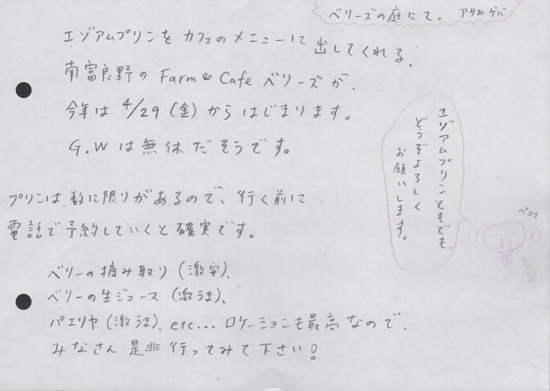 ベリーズの庭にて。
エゾアムプリンをカフェのメニューに出してくれる、
南富良野の Farm & Cafe ベリーズが、
今年は 4/29 (金) からはじまります。
G.Wは無休だそうです。
プリンは、数に限りがあるので、行く前に
電話で予約していくと確実です。
ベリーの摘み取り (激安)、
ベリーの生ジュース (激うま)、
パエリヤ (激うま)、etc... ロケーションも最高なので、
みなさん是非行ってみて下さい!
エゾアムプリンともども、
どうぞよろしく
お願いします。
ペコリ